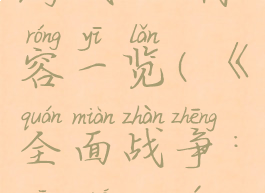 róng yī lǎn
容一览(《
quán miàn zhàn zhēng
全面战争: